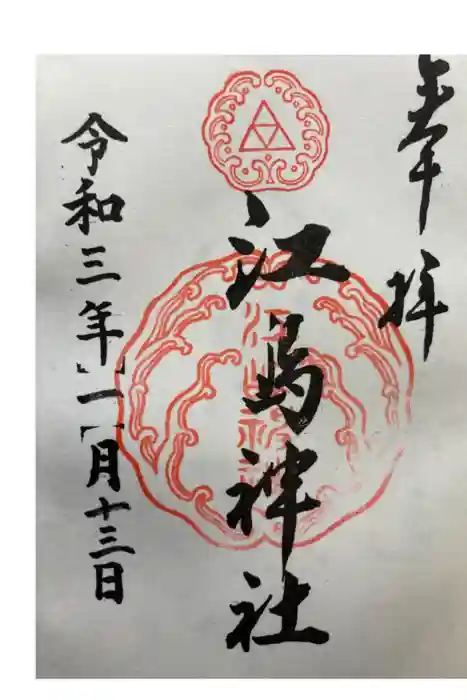 奉拝
江島神社
令和三年一月十三日